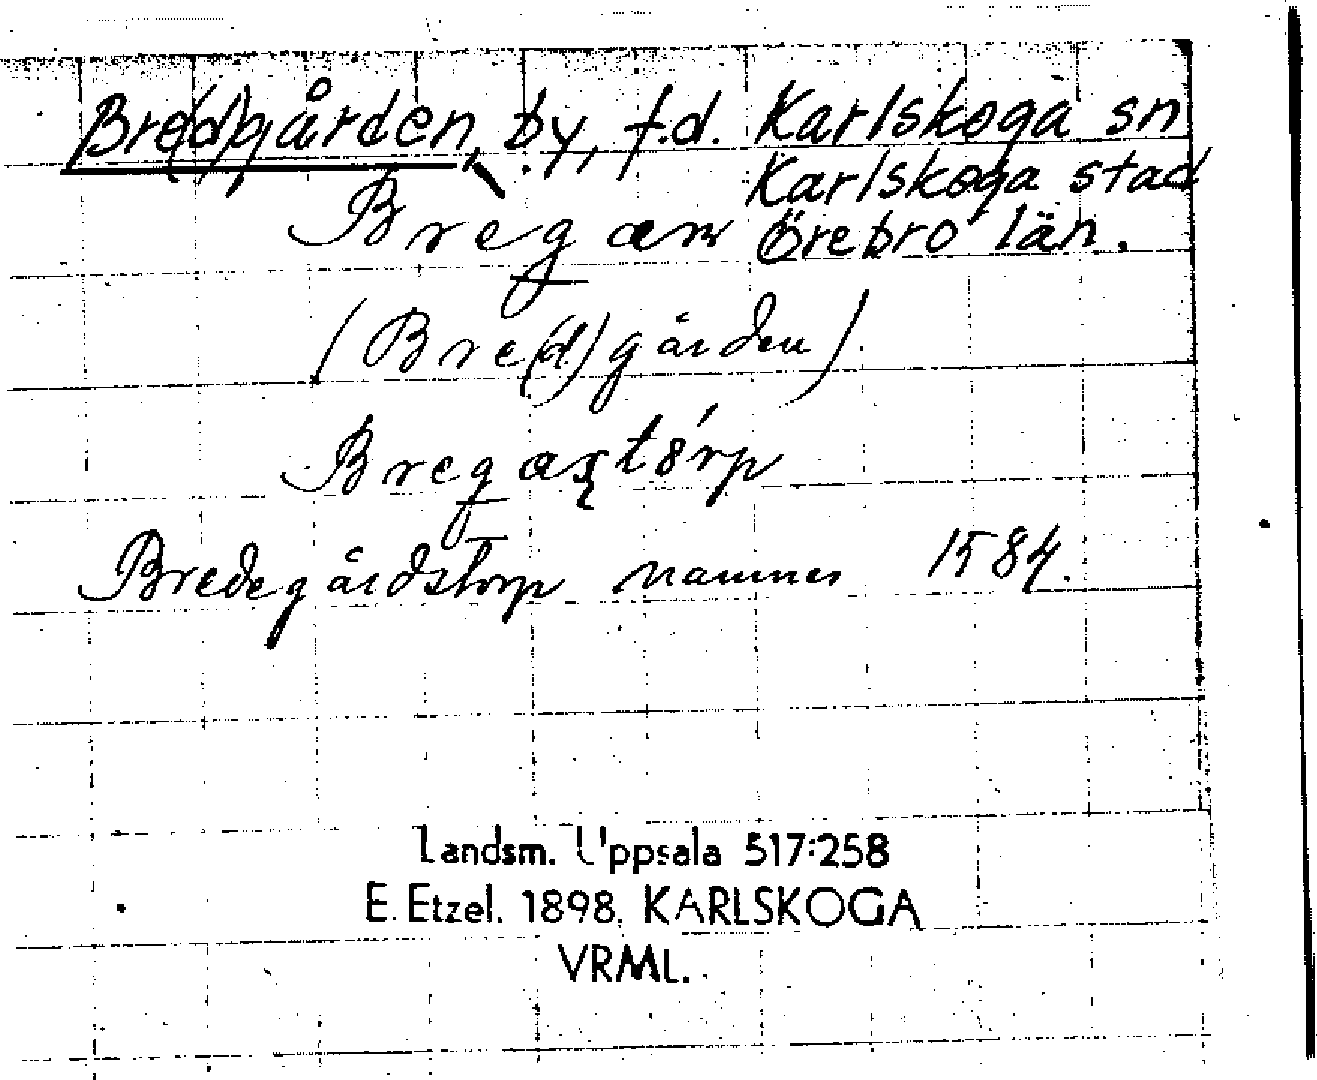 Bre(d)gården, by, f.d. Karlskoga sn
Karlskoga stad
Örebro län.
Bregan
(Bre(d)gården).
Bregaştórp
Bredegårdstorp namnes 1584.
Landsm. Uppsala 517:258
E. Etzel. 1898. KARLSKOGA
VRML.